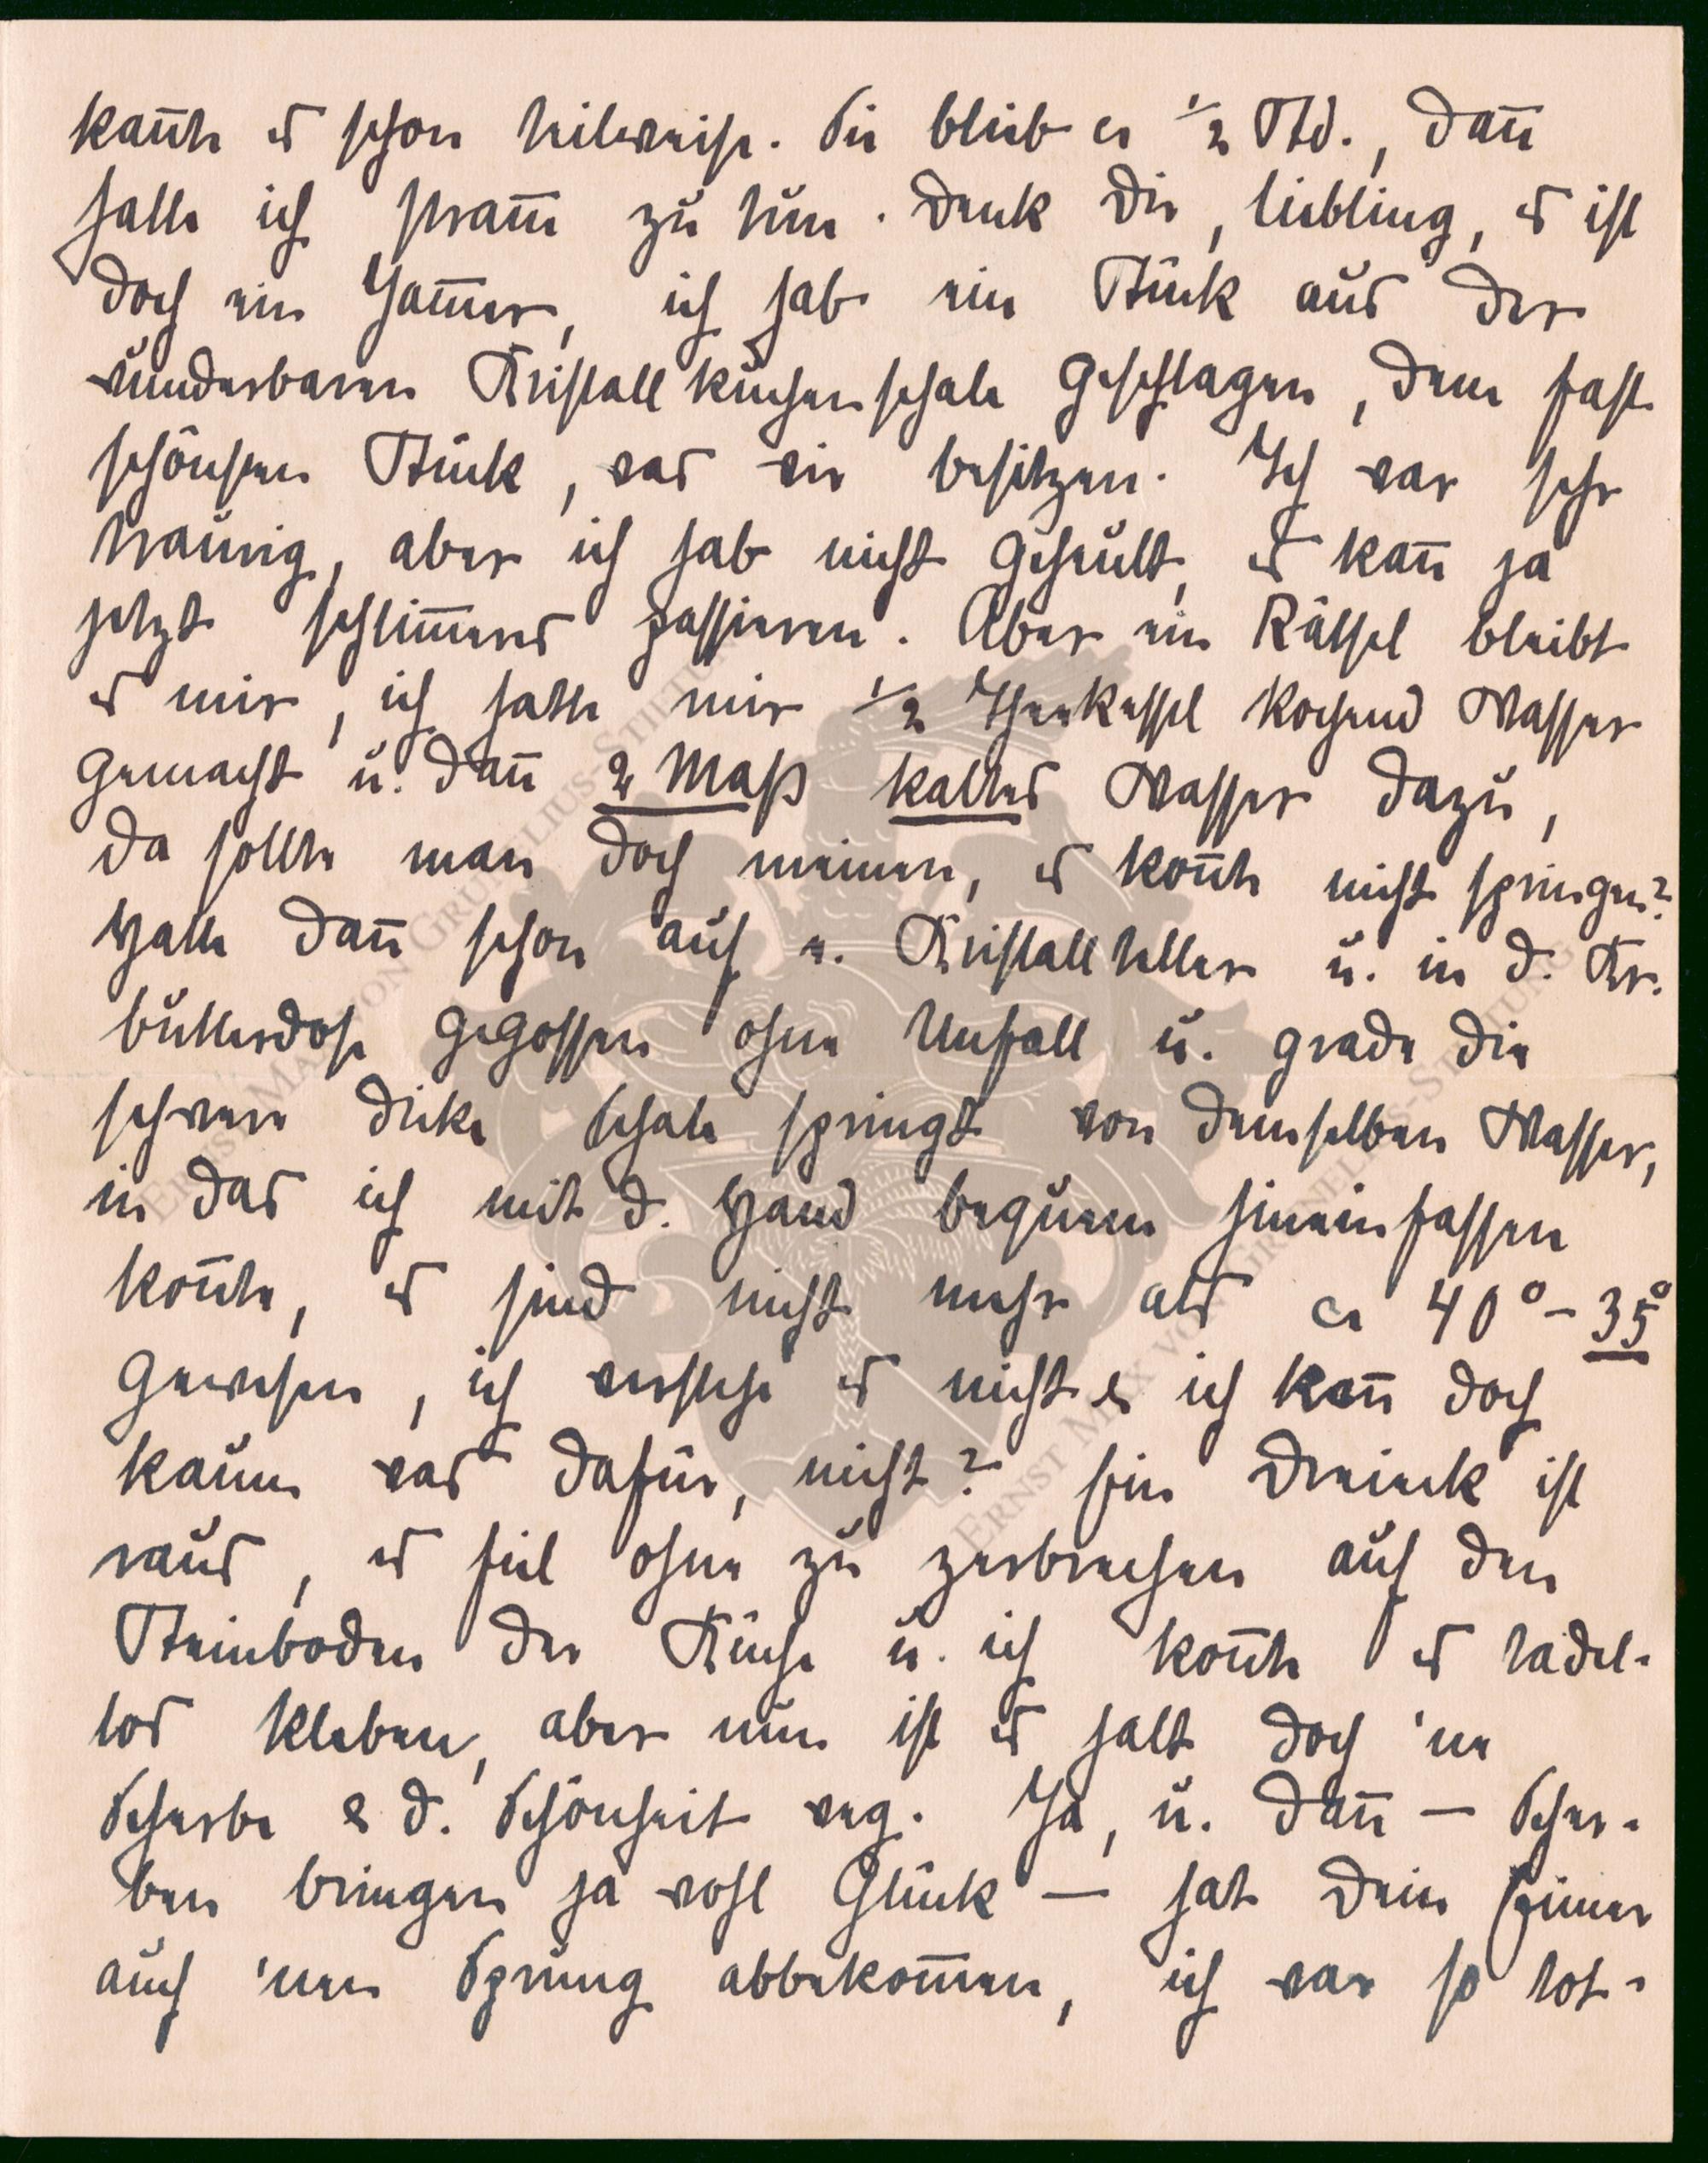 kannte es schon teilweise. Sie blieb ca ½ Std., dann
hatte ich stramm zu tun. Denk Dir, Liebling, es ist
doch ein Jammer, ich hab ein Stück aus der
wunderbaren Kristallkuchenschale geschlagen, dem fast
schönsten Stück, was wir besitzen. Ich war sehr
traurig, aber ich hab nicht geheult, es kann ja
jetzt schlimmeres passieren. Aber ein Rätsel bleibt
es mir, ich hatte mir ½ Theekessel kochend Wasser
gemacht u. dann 2 Maß kaltes Wasser dazu,
da sollte man doch meinen, es konnte nicht springen?
Hatte dann schon auf e. Kristallteller u. in d. Kr.
butterdose gegossen ohne Unfall u. grade die
schwere dicke Schale springt von demselben Wasser,
in das ich mit d. Hand bequem hineinfassen
konnte, es sind nicht mehr als ca 40° – 35°
gewesen, ich verstehe es nicht & ich kann doch
kaum was dafür, nicht? Ein Dreieck ist
raus, es fiel ohne zu zerbrechen auf den
Steinboden der Küche u. ich konnte es tadel-
los kleben, aber nun ist es halt doch 'ne
Scherbe & d. Schönheit weg. Ja, u. dann — Scher-
ben bringen ja wohl Glück — hat Dein Eimer
auch 'nen Sprung abbekommen, ich war so tot-
ERNST MAX VON GRUNELIUS-STIFTUNG
ERNST MAX VON GRUNELIUS-STIFTUNG